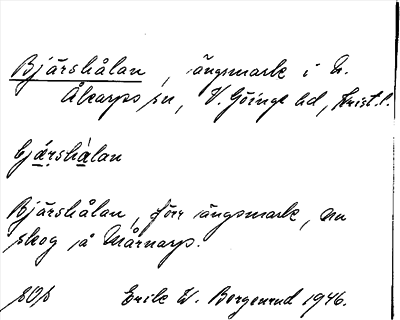 Bjärshålan, ängsmark i N.
Åkarps sn, V. Göinge hd, Krist. l.
bjärshålan
Bjärshålan, förr ängsmark, nu
skog på Mårnarp.
Erik W. Bergenrud 1946.